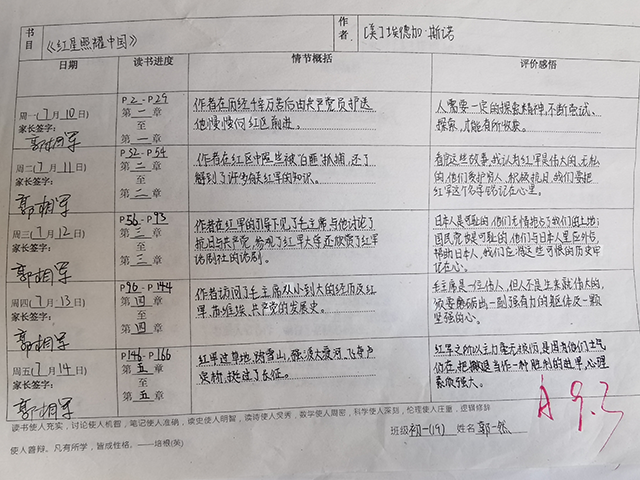 书目 《红星照耀中国》 作者 [美]埃德加·斯诺
日期 读书进度 情节概括 评价感悟
周一(7月10日) P2-P29
家长签字: 第一章至第一章
作者在历经千辛万苦后由共产党员护送
他慢慢向红区前进。
人需要一定的探索精神,不断尝试、
探索,才能有所收获。
周二(7月11日) P32-P54
家长签字: 第二章至第二章
作者在红区中险些被白匪抓捕,还了
解到了许多有关红军的知识。
看完这些故事,我认为红军是伟大的,无私
的,他们爱护穷人,积极抗日,我们要把
红军这个名字铭记在心里。
周三(7月12日) P56-P93
家长签字: 第三章至第三章
作者在红军的引导下见了毛主席,与他讨论了
抗日与共产党,参观了红军大学还欣赏了红军
话剧社的话剧。
日本人是可耻的,他们无情抢占了我们的土地;
国民党也是可耻的,他们与日本人里应外合,
帮助日本人,我们应将这可恨的历史牢
记在心。
周四(7月13日) P96-P144
家长签字: 第四章至第四章
作者访问了毛主席从小到大的经历及红
军,苏维埃,共产党的发展史。
毛主席是一位伟人,但人不是生来就伟大的,
须要磨砺出一副强有力的躯体及一颗
坚强的心。
周五(7月14日) P146-P166
家长签字: 第五章至第五章
红军过草地,踏雪山,横渡大渡河,飞夺泸
定桥,挺过了长征。
红军之所以主力毫无损伤,是因有他们士气
仍在,把撤退当作一种胜利的进军,心理
素质强大。
郭相军
郭相军
郭相军
郭相军
郭相军
A 9.3
读书使人充实,讨论使人机智,笔记使人准确,读史使人明智,读诗使人灵秀,数学使人周密,科学使人深刻,伦理使人庄重,逻辑修辞
使人善辩。凡有所学,皆成性格。——培根(英)
班级 初一(19) 姓名 郭一然